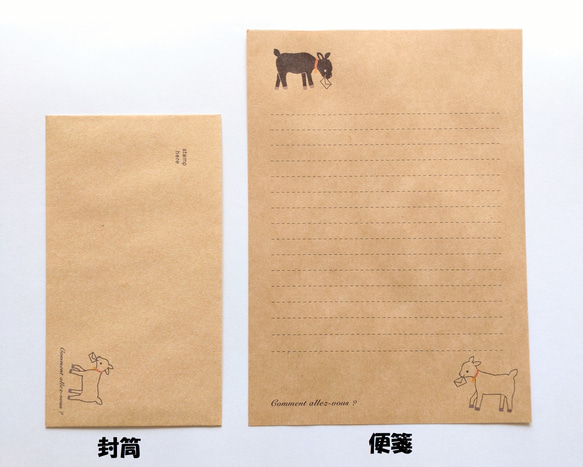 stamp
here
Comment allez-vous ?
封筒
Comment allez-vous ?
便箋